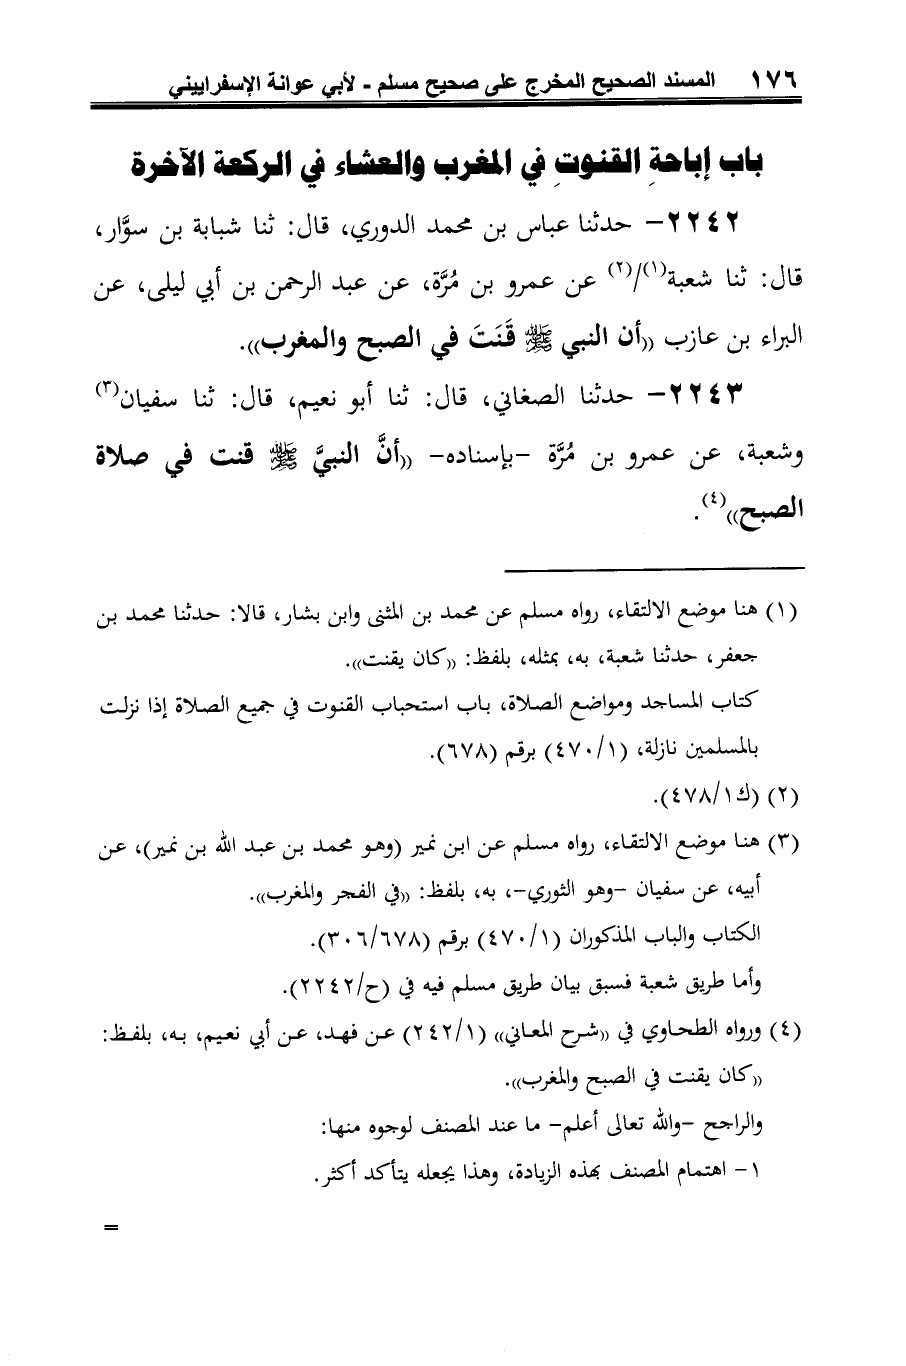 ١٧٦ المسند الصحيح المخرج على صحيح مسلم - لأبي عوانة الإسفراييني
باب إباحةِ القنوتِ في المغرب والعشاء في الركعة الآخرة
٢٢٤٢- حدثنا عباس بن محمد الدوري، قال: ثنا شبابة بن سوَّار،
قال: ثنا شعبة(١)/(٢) عن عمرو بن مُرَّة، عن عبد الرحمن بن أبي ليلى، عن
البراء بن عازب ((أن النبي ﷺ قَنَتَ في الصبح والمغرب)).
٢٢٤٣- حدثنا الصغاني، قال: ثنا أبو نعيم، قال: ثنا سفيان(٣)
وشعبة، عن عمرو بن مُرَّة -بإسناده- ((أنَّ النبيَّ ﷺ قنت في صلاة
الصبح))(٤).
(١) هنا موضع الالتقاء، رواه مسلم عن محمد بن المثنى وابن بشار، قالا: حدثنا محمد بن
جعفر، حدثنا شعبة، به، بمثله، بلفظ: ((كان يقنت)).
كتاب المساجد ومواضع الصلاة، باب استحباب القنوت في جميع الصلاة إذا نزلت
بالمسلمين نازلة، (٤٧٠/١) برقم (٦٧٨).
(٢) (ك٤٧٨/١).
(٣) هنا موضع الالتقاء، رواه مسلم عن ابن نمير (وهو محمد بن عبد الله بن نمير)، عن
أبيه، عن سفيان -وهو الثوري-، به، بلفظ: ((في الفجر والمغرب)).
الكتاب والباب المذكوران (٤٧٠/١) برقم (٣٠٦/٦٧٨).
وأما طريق شعبة فسبق بيان طريق مسلم فيه في (ح/٢٢٤٢).
(٤) ورواه الطحاوي في ((شرح المعاني)) (٢٤٢/١) عن فهد، عن أبي نعيم، به، بلفظ:
((كان يقنت في الصبح والمغرب)).
والراجح -والله تعالى أعلم- ما عند المصنف لوجوه منها:
١- اهتمام المصنف بهذه الزيادة، وهذا يجعله يتأكد أكثر.
=